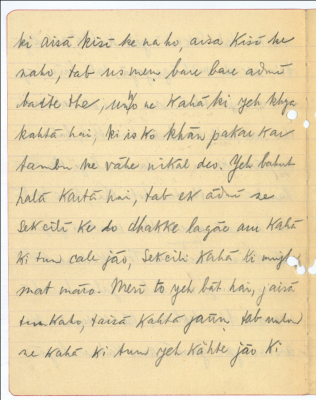 ki aisā kisī ke na ho, aisa kisī ke
naho, tab us meṃ bare bare admī
baiṭe the, unhoṃ ne kahā ki yeh kya
kahtā hai, ki is ko khān pakar kar
tambu ke vāhe nikāl deo. Yeh bahut
halā kartā hai, tab ek ādmī ne
Sekcilī ke do dhakke lagāe aur kahā
ki tum cale jāo, Sekcilī kahā ki mujhe
mat māro. Merī to yeh bāt hai, jaisā
tum kaho, taisā kahtā jāūṃ. tab unhoṃ
ne kahā ki tum yeh kahte jāo ki